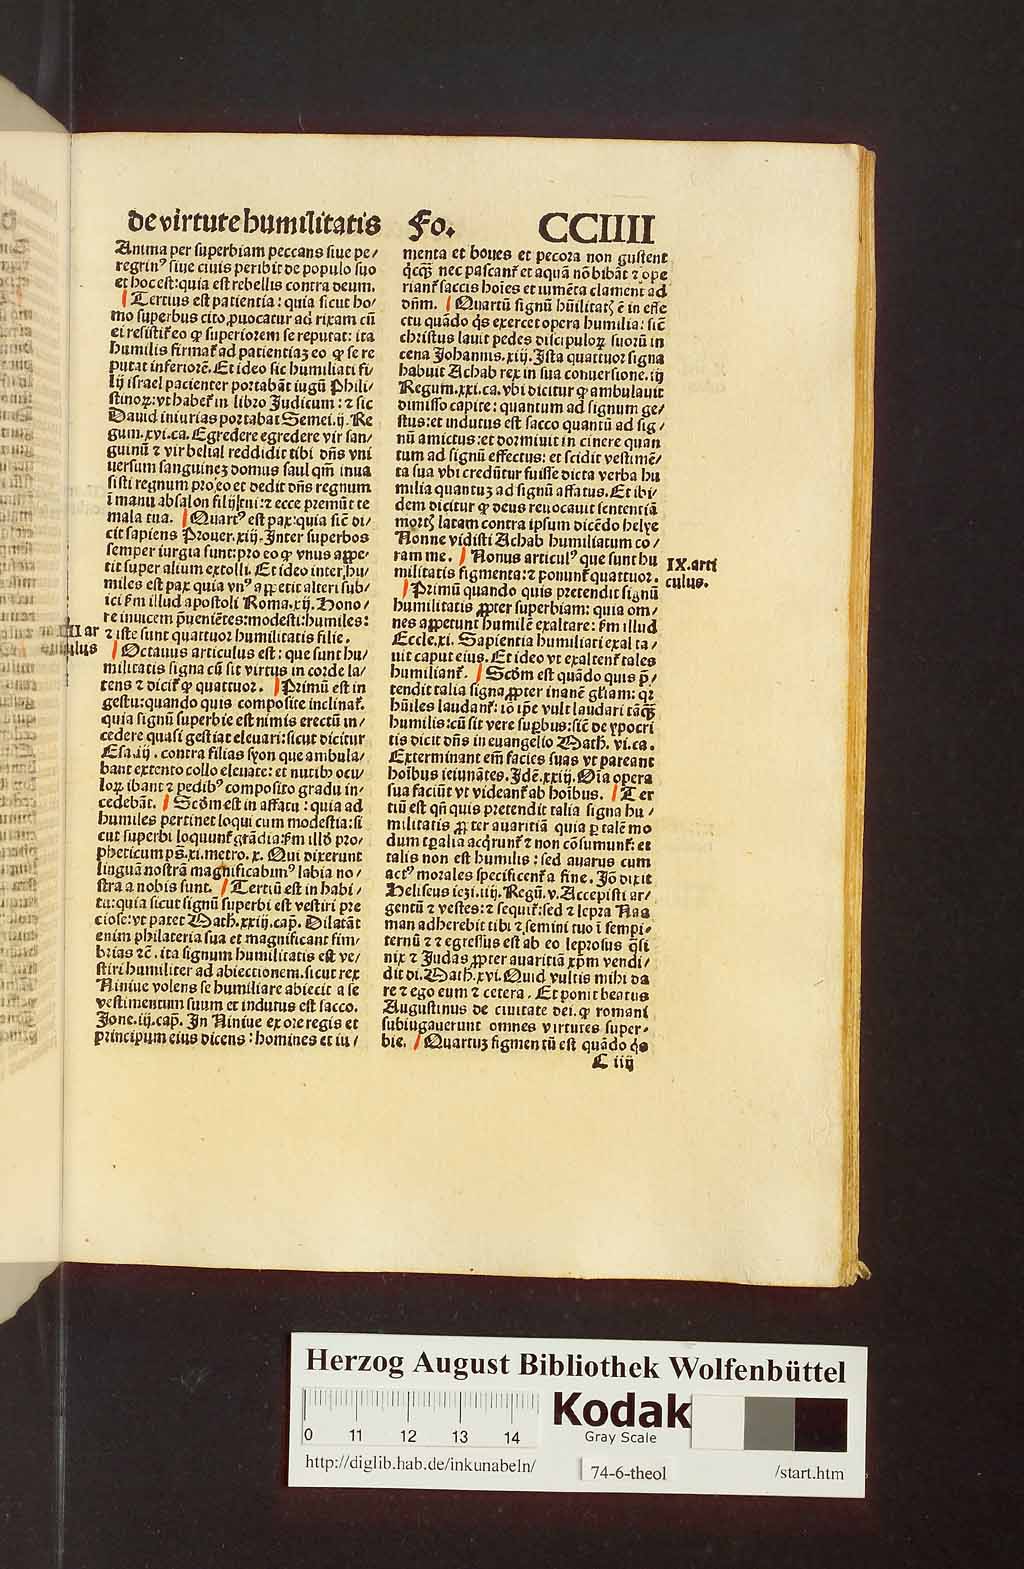 de virtute humilitatis Fo. CCIIII
Anima per superbiam peccans siue pe/
regrinꝰ siue ciuis peribit de populo suo
et hoc est: quia est rebellis contra deum.
Tertius est patientia: quia sicut ho/
mo superbus cito ꝓuocatur ad rixam cū
ei resistit̄ eo ꝙ superiorem se reputat: ita
humilis firmat̄ ad patientiaꝫ eo ꝙ se re
putat inferiorē. Et ideo sic humiliati fi/
lij israel pacienter portabāt iugū Phili/
stinoꝝ: vt habet̄ in libro Judicum: ⁊ sic
Dauid iniurias portabat Semei. ij. Re
gum. xvi. ca. Egredere egredere vir san/
guinū ⁊ vir belial reddidit tibi dn̄s vni
uersum sanguineꝫ domus saul qm̄ inua
sisti regnum pro eo et dedit dn̄s regnum
ī manu absalon filij tui: ⁊ ecce premūt te
mala tua. Quartꝰ est pax: quia sic̄ di/
cit sapiens Prouer. xiij. Inter superbos
semper iurgia sunt: pro eo ꝙ vnus appe/
tit super alium extolli. Et ideo inter hu/
miles est pax quia vnꝰ appetit alteri sub/
ici ẜm illud apostoli Roma. xij. Hono/
re inuicem p̄uenientes: modesti: humiles:
⁊ iste sunt quattuor humilitatis filie.
IIII ar
culus
Octauus articulus est: que sunt hu/
militatis signa cū sit virtus in corde la/
tens ⁊ dicit̄ ꝙ quattuor. Primū est in
gestu: quando quis composite inclinat̄.
quia signū superbie est nimis erectū in/
cedere quasi gestiat eleuari: sicut dicitur
Esa. iij. contra filias syon que ambula/
bant extento collo eleuate: et nutibꝰ ocu
loꝝ ibant ⁊ pedibꝰ composito gradu in/
cedebāt. Scd̄m est in affatu: quia ad
humiles pertinet loqui cum modestia: si
cut superbi loquunt̄ grādia: ẜm illd̄ pro/
pheticum ps̄. xi. metro. x. Qui dixerunt
linguā nostrā magnificabimꝰ labia no/
stra a nobis sunt. Tertiū est in habi/
tu: quia sicut signū superbi est vestiri pre
ciose: vt patet Math. xxiij. cap̄. Dilatāt
enim philateria sua et magnificant fim/
brias ⁊c̄. ita signum humilitatis est ve/
stiri humiliter ad abiectionem. sicut rex
Niniue volens se humiliare abiecit a se
vestimentum suum et indutus est sacco.
Jone. iij. cap̄. In Niniue ex ore regis et
principum eius dicens: homines et iu/
menta et boues et pecora non gustent
q̇cq̄ꝫ nec pascant̄ et aquā nō bibāt ⁊ ope
riant̄ saccis hoīes et iumēta clament ad
dn̄m. Quartū signū hūilitatꝭ ē in effe
ctu quādo q̇s exercet opera humilia: sic̄
christus lauit pedes discipuloꝝ suorū in
cena Johannis. xiij. Ista quattuor signa
habuit Achab rex in sua conuersione. iij
Regum. xxi. ca. vbi dicitur ꝙ ambulauit
dimisso capite: quantum ad signum ge/
stus: et indutus est sacco quantū ad sig/
nū amictus: et dormiuit in cinere quan
tum ad signū effectus: et scidit vestimē/
ta sua vbi credūtur fuisse dicta verba hu
milia quantuꝫ ad signū affatus. Et ibi/
dem dicitur ꝙ deus reuocauit sententiā
mortꝭ latam contra ipsum dicēdo helye
Nonne vidisti Achab humiliatum co/
ram me. Nonus articulꝰ que sunt hu
IX. arti
culus.
militatis figmenta: ⁊ ponunt̄ quattuor.
Primū quando quis pretendit signū
humilitatis ꝓpter superbiam: quia om/
nes appetunt humilē exaltare: ẜm illud
Eccle. xi. Sapientia humiliati exalta/
uit caput eius. Et ideo vt exaltent̄ tales
humiliant̄. Scd̄m est quādo quis p̄/
tendit talia signa ꝓpter inanē gl̄iam: qꝛ
hūiles laudant̄: iō ip̄e vult laudari tāq̄ꝫ
humilis: cū sit vere suꝑbus: sic̄ de ypocri
tis dicit dn̄s in euangelio Math. vi. ca.
Exterminant em̄ facies suas vt pareant
hoībus ieiunātes. Idē. xxiij. Oīa opera
sua faciūt vt videant̄ ab hoībus. Ter
tiū est qn̄ quis pretendit talia signa hu/
militatis ꝓpter auaritiā quia ꝑ talē mo
dum tꝑalia acq̇runt̄ ⁊ non cōsumunt̄: et
talis non est humilis: sed auarus cum
actꝰ morales specificent̄ a fine. Jō dixit
Heliseus iezi. iiij. Regū. v. Accepisti ar/
gentū ⁊ vestes: ⁊ sequit̄: sed ⁊ lepra Naa
man adherebit tibi ⁊ semini tuo ī sempi/
ternū ⁊ ⁊ egressus est ab eo leprosus q̄si
nix ⁊ Judas ꝓpter auaritiā xp̄m vendi/
dit di. Math. xvi. Quid vultis mihi da
re ⁊ ego eum ⁊ cetera. Et ponit beatus
Augustinus de ciuitate dei. ꝙ romani
subiugauerunt omnes virtutes super/
bie. Quartuꝫ figmentū est quādo q̇s
C iiij
Herzog August Bibliothek Wolfenbüttel
0 11 12 13 14
Kodak
Gray Scale
http://diglib.hab.de/inkunabeln/ 74-6-theol /start.htm